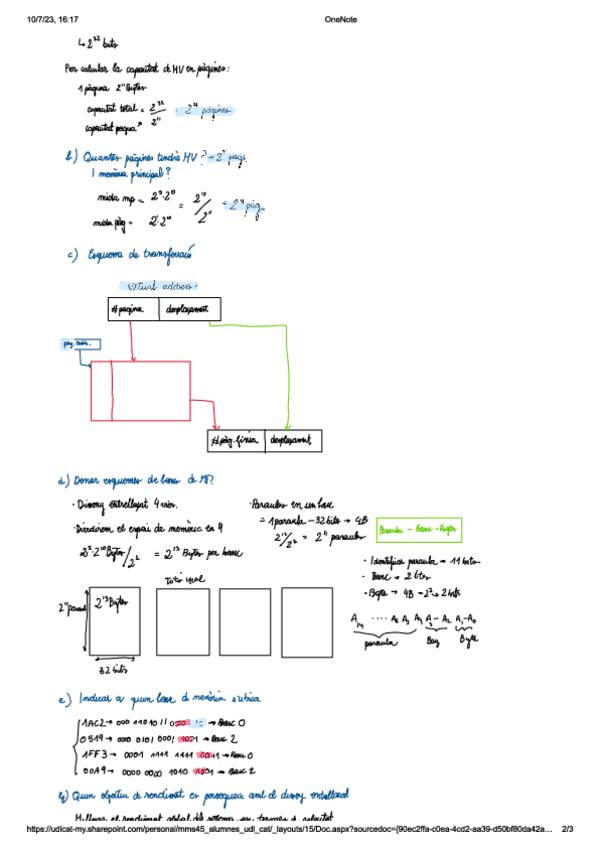 10/7/23, 16:17
OneNote
↳ 2^32 bits
Per calcular la capacitat d MV en pàgines:
1 pàgina 2^11 Bytes
capacitat total = 2^32
capacitat pagina 2^11
b) Quantes pàgines tindrà MV?
I memòria principal?
mida mp = 2^5·2^10 =
mida pàg = 2^1·2^10
c) Esquema de
virtual address:
#pagina desplaçament
pag. table.
#pàg. física desplaçament
d) Donar esquemes de bancs de MP?
· Disseny entrellaçat 4 vies.
· Dividirem el espai de memòria en 4
2^5·2^10 Bytes/2^2 = 2^13 Bytes per banc
· Paraules en un banc
= 1 paraula - 32 bits → 4B
2^13/2^2 = 2^11 paraules
Paraula - Banc - Bytes
· Identifica paraula = 11 bits
· Banc = 2 bits
· Byte → 4B → 2^2 → 2 bits
2^13 Bytes
Tots igual
32 bits
paraula Byte
e) Indicar a quin banc d memòria s'ubica
1AC2 → → Banc 0
0519 → 0000 0101 0001 1001 → Banc 2
1FF3 → 0001 1111 1111 0011 → Banc 0
00A9 → 0000 0000 1010 1001 → Banc 2
Quin objectiu de rendiment es persegueix amb el disseny entrellaçat
https://udlcat-my.sharepoint.com/personal/mms45_alumnes_udl_cat/_layouts/15/Doc.aspx?sourcedoc={90ec2ffa-c0ea-4cd2-aa39-d50bf80da42a…
2/3